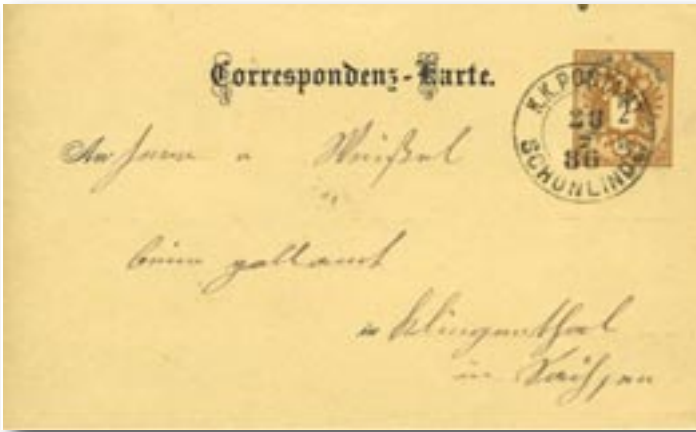 Correspondenz-Karte.
2
K.K.POST
20
2
86
SCHÖNLINDE
An Herrn
beim Zollamt
in Klingenthal
in Sachsen